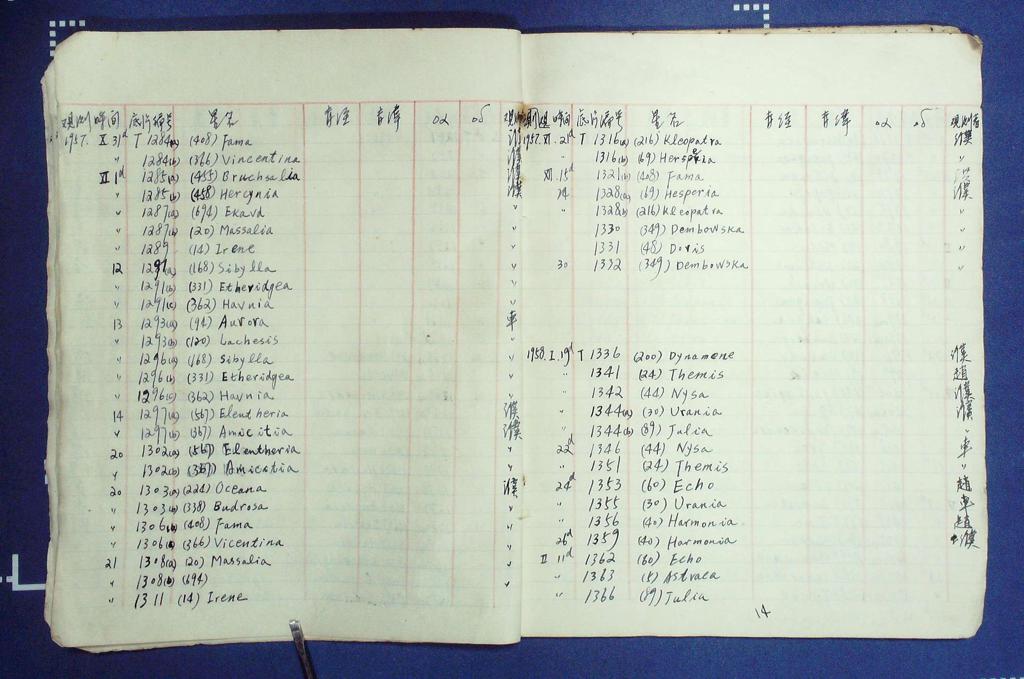 观测时间 底片编号 星名 赤经 赤纬 σα σδ 观测者
1957. X 31d T 1284(a) (408) Fama 濮
" 1284(b) (366) Vincentina 濮
XI 1d 1285(a) (455) Bruchsalia 濮
" 1285(b) (458) Hercynia 濮
" 1287(a) (694) Ekard "
" 1287(b) (20) Massalia "
" 1289 (14) Irene "
12 1291(a) (168) Sibylla "
" 1291(b) (331) Etheridgea "
" 1291(c) (362) Havnia "
13 1293(a) (94) Aurora 车
" 1293(b) (120) Lachesis "
" 1296(a) (168) Sibylla "
" 1296(b) (331) Etheridgea "
" 1296(c) (362) Havnia "
14 1297(a) (567) Eleutheria 濮
" 1297(b) (367) Amicitia 濮
20 1302(a) (567) Eleutheria "
" 1302(b) (367) Amicitia "
20 1303(a) (224) Oceana 濮
" 1303(b) (338) Budrosa "
" 1306(a) (408) Fama "
" 1306(b) (366) Vicentina "
21 1308(a) (20) Massalia "
" 1308(b) (694) "
" 1311 (14) Irene
观测时间 底片编号 星名 赤经 赤纬 σα σδ 观测者
1957. XI. 21d T 1316(a) (216) Kleopatra 濮
" 1316(b) (69) Hesperia "
XII. 15d 1321(b) (408) Fama
24 1328(a) (69) Hesperia 濮
" 1328(b) (216) Kleopatra "
1330 (349) Dembowska "
1331 (48) Doris "
30 1332 (349) Dembowska "
1958. I. 19d T 1336 (200) Dynamene 濮
" 1341 (24) Themis 趙
" 1342 (44) Nysa 濮
" 1344(a) (30) Urania 濮
" 1344(b) (89) Julia "
22d 1346 (44) Nysa 车
" 1351 (24) Themis "
24d 1353 (60) Echo 趙
" 1355 (30) Urania 车
" 1356 (40) Harmonia 趙
26d 1359 (40) Harmonia 濮
II 11d 1362 (60) Echo
" 1363 (5) Astraea
" 1366 (89) Julia
14